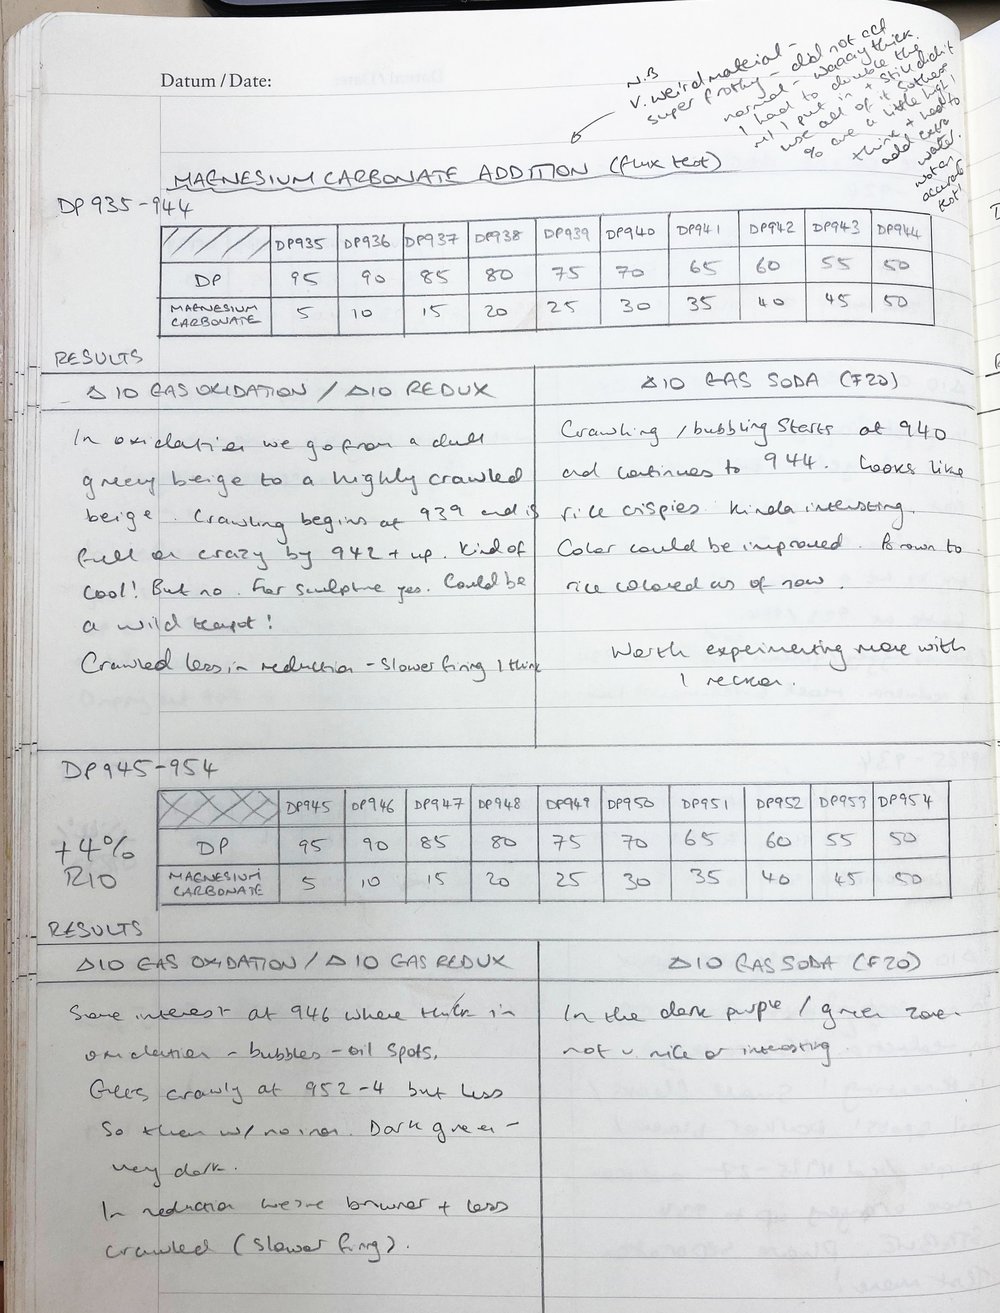 Datum / Date:
N.B
V. weird material -
super frothy - did not act
normal - waaay thick.
I had to double the
ml I put in + still didn't
use all of it so these
% are a little high I
think + had to
add extra
water.
Not an
accurate
test!
MAGNESIUM CARBONATE ADDITION (flux test)
DP935-944
DP935 DP936 DP937 DP938 DP939 DP940 DP941 DP942 DP943 DP944
DP 95 90 85 80 75 70 65 60 55 50
MAGNESIUM CARBONATE 5 10 15 20 25 30 35 40 45 50
RESULTS
Δ10 GAS OXIDATION / Δ10 REDUX
In oxidation we go from a dull
greeny beige to a highly crawled
beige. Crawling begins at 939 and is
full on crazy by 942 + up. Kind of
cool! But no. For sculpture yes. Could be
a wild teapot!
Crawled less in reduction - slower firing I think
Δ10 GAS SODA (F20)
Crawling / bubbling starts at 940
and continues to 944. Looks like
rice crispies. Kinda interesting.
Color could be improved. Brown to
rice colored as of now.
Worth experimenting more with
I reckon.
DP945-954
+4%
RIO
DP945 DP946 DP947 DP948 DP949 DP950 DP951 DP952 DP953 DP954
DP 95 90 85 80 75 70 65 60 55 50
MAGNESIUM CARBONATE 5 10 15 20 25 30 35 40 45 50
RESULTS
Δ10 GAS OXIDATION / Δ10 GAS REDUX
Some interest at 946 where thick in
oxidation - bubbles - oil spots.
Gets crawly at 952-4 but less
so then w/ no iron. Dark green -
very dark.
In reduction we're browner + less
crawled (slower firing).
Δ10 GAS SODA (F20)
In the dark purple / green zone -
not v. nice or interesting.